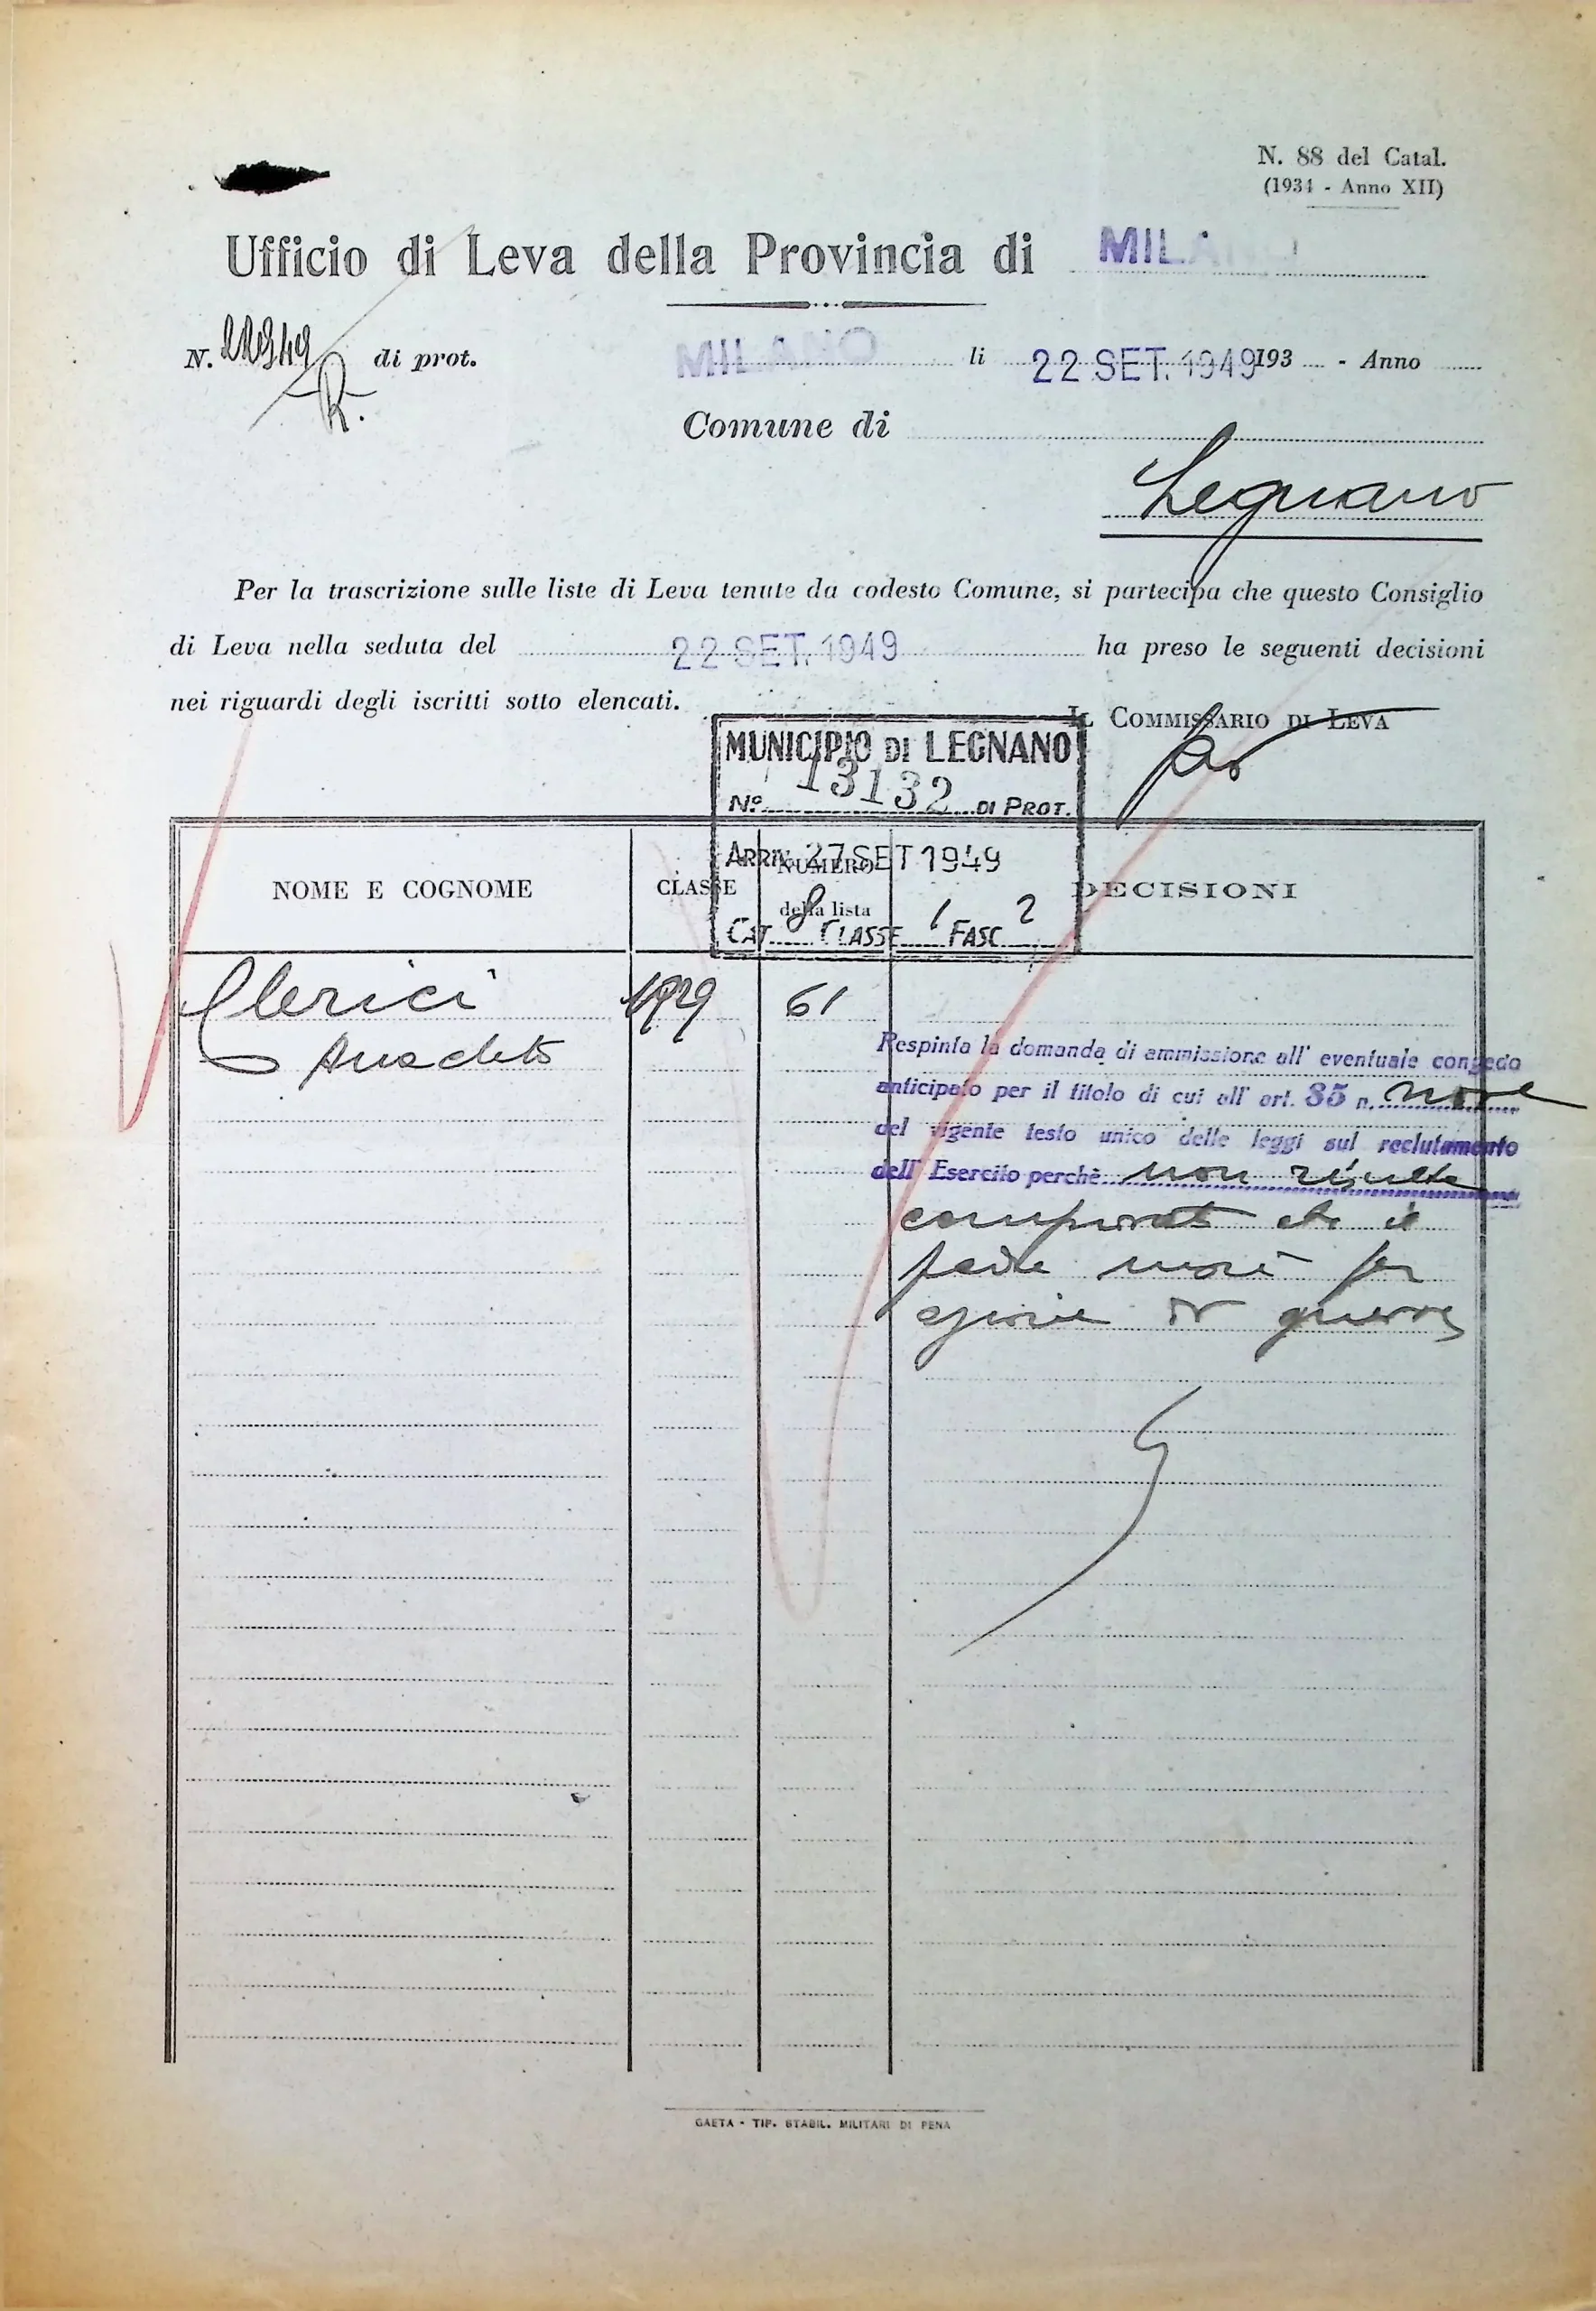 N. 88 del Catal.
(1934 - Anno XII)
Ufficio di Leva della Provincia di MILANO
N. di prot.
MILANO li 22 SET. 1949 193 - Anno
Comune di
Legnano
Per la trascrizione sulle liste di Leva tenute da codesto Comune, si partecipa che questo Consiglio
di Leva nella seduta del 22 SET. 1949 ha preso le seguenti decisioni
nei riguardi degli iscritti sotto elencati.
IL COMMISSARIO DI LEVA
MUNICIPIO DI LEGNANO
No. 13132 DI PROT.
ARRIV. 27 SET 1949
CAT. 8 CLASSE 1 FASC. 2
NOME E COGNOME CLASSE NUMERO della lista DECISIONI
Clerici 1929 61
Anacleto
Respinta la domanda di ammissione all' eventuale congedo
anticipato per il titolo di cui all' art. 85 n. nove
del vigente testo unico delle leggi sul reclutamento
dell' Esercito perchè non risulta
comprovato che il
padre morì per
azione di guerra
GAETA - TIP. STABIL. MILITARI DI PENA